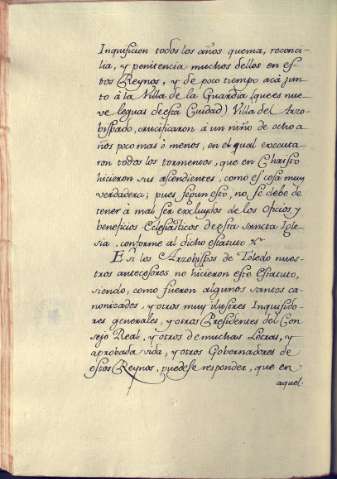 Inquisicion todos los años quema, reconci-
lia, y penitencia muchos dellos en es-
tos Reynos, y de poco tiempo acá jun-
to á la Villa de la Guardia (que es nue-
ve leguas de esta Ciudad) Villa del Arzo-
bispado, crucificaron á un niño de ocho a-
ños poco mas ó menos, en el qual executa-
ron todos los tormentos, que en Christo
hicieron sus ascendientes, como es cosa muy
verdadera; pues segun esto, no se debe de
tener á mal ser excluydos de los Oficios y
beneficios Eclesiásticos de esta Sancta Igle-
sia, conforme al dicho estatuto &c.
E si los Arzobispos de Toledo nues-
tros antecesores no hicieron este Estatuto,
siendo, como fueron algunos santos ca-
nonizados, y otros muy ilustres Inquisido-
res generales, y otros Presidentes del Con-
sejo Real, y otros de muchas Letras, y
aprobada vida, y otros Gobernadores de
estos Reynos, puedese responder, que en
aquel